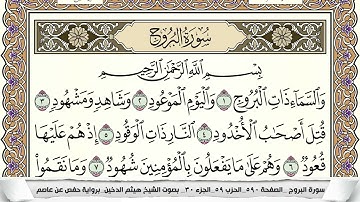 سُورَةُ الْبُرُوجِ
بِسْمِ اللَّهِ الرَّحْمَٰنِ الرَّحِيمِ
وَالسَّمَاءِ ذَاتِ الْبُرُوجِ ١ وَالْيَوْمِ الْمَوْعُودِ ٢ وَشَاهِدٍ وَمَشْهُودٍ ٣
قُتِلَ أَصْحَابُ الْأُخْدُودِ ٤ النَّارِ ذَاتِ الْوَقُودِ ٥ إِذْ هُمْ عَلَيْهَا
قُعُودٌ ٦ وَهُمْ عَلَىٰ مَا يَفْعَلُونَ بِالْمُؤْمِنِينَ شُهُودٌ ٧ وَمَا نَقَمُوا
سورة البروج - الصفحة ٥٩٠ - الحزب ٥٩ - الجزء ٣٠ - بصوت الشيخ هيثم الدخين - برواية حفص عن عاصم